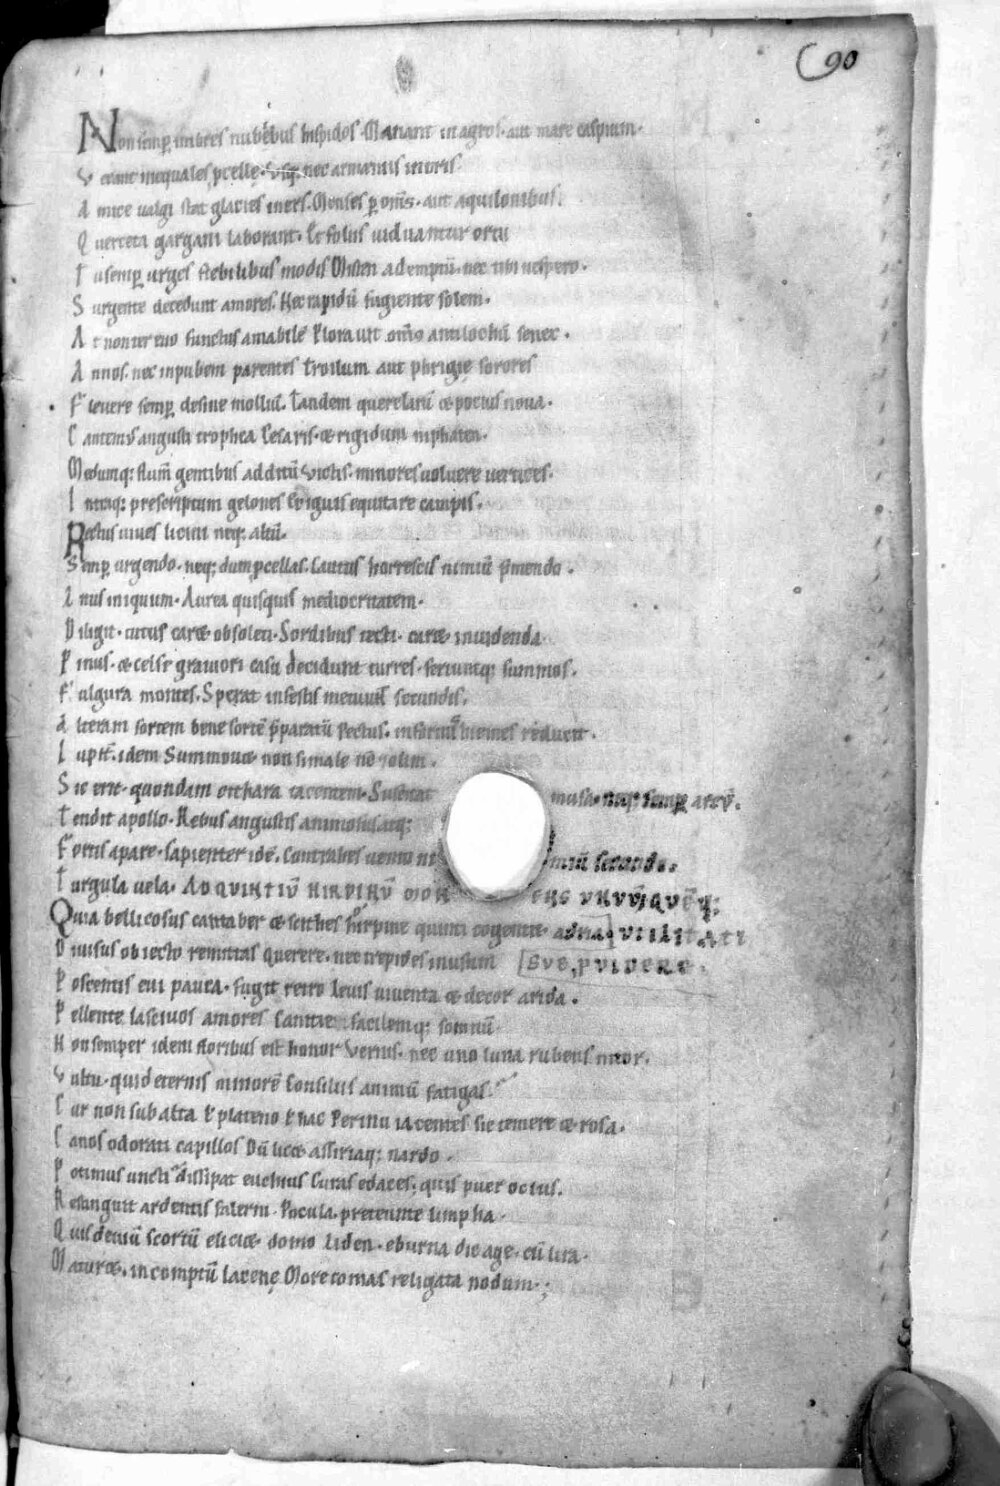 90
Non semp imbres nubibus hispidos. Manant in agros. aut mare caspium.
Vexant inequales pcellę. usq; nec armaniis in oris.
Amice ualgi stat glacies iners. Menses p oms. aut aquilonibus.
Querceta gargani laborant. Et foliis uiduantur orni
Tu semp urges flebilibus modis Misten ademptū. nec tibi uespero.
Surgente decedunt amores. Nec rapidū fugiente solem.
At non ter euo functus amabilē Plorauit oms antilochū senex.
Annos. nec inpubem parentes Troilum aut phrigię sorores
Fleuere semp. desine molliū. Tandem querelarū & potius noua.
Cantem' augusti trophea Cesaris. & rigidum niphaten.
Medumq; flum gentibus additū Victis. minores uoluere uertices.
Intraq; prescriptum gelonos Exiguis equitare campis.
Rectius uiues licini neq; altū.
Semp urgendo. neq; dum pcellas. Cautus horrescis nimiū pmendo.
Litus iniquum. Aurea quisquis mediocritatem.
Diligit. tutus car& obsoleti. Sordibus tecti. car& inuidenda
Pinus. & celse grauiori casu decidunt turres. feriuntq; summos.
Fulgura montes. Sperat infestis metuit secundis.
Alteram sortem bene sortē pparatū Pectus. informis hiemes reducit.
Iupit. idem Summou& non si male nc & olim.
Sic erit. quondam cithara tacentem. Suscitat musā. neq; semp arcū.
Tendit apollo. Rebus angustis animosus atq;
Fortis apare. sapienter idē. Contrahes uento ni miū secundo.
Turgida uela. AD QUINTIŪ HIRPINŪ
Quia bellicosus cantaber & scithes hirpine quinti cogent&. adria UTILITATI
Diuisus obiecto remittas querere. nec trepides in usum SUE,
Poscentis eui pauca. fugit retro leuis iuuenta & decor arida.
Pellente lasciuos amores Canitie facilemq; somnū.
Non semper idem floribus est honor Vernis. nec uno luna rubens nitor.
Vultu. quid eternis minorē Consiliis animū fatigas.
Cur non sub alta t plateno t hac Pe&inu iacentes sic temere & rosa.
Canos odorati capillos Dū lic& assiriaq; nardo.
Potimus uncti dissipat euchius Curas edaces. quis puer ocius.
Restinguit ardentis falerni. Pocula. pretereunte limpha.
Quis deuiū scortū elici& domo Liden. eburna dic age. cū lira.
Matur&. in comptū lacenę More comas religata nodum.;